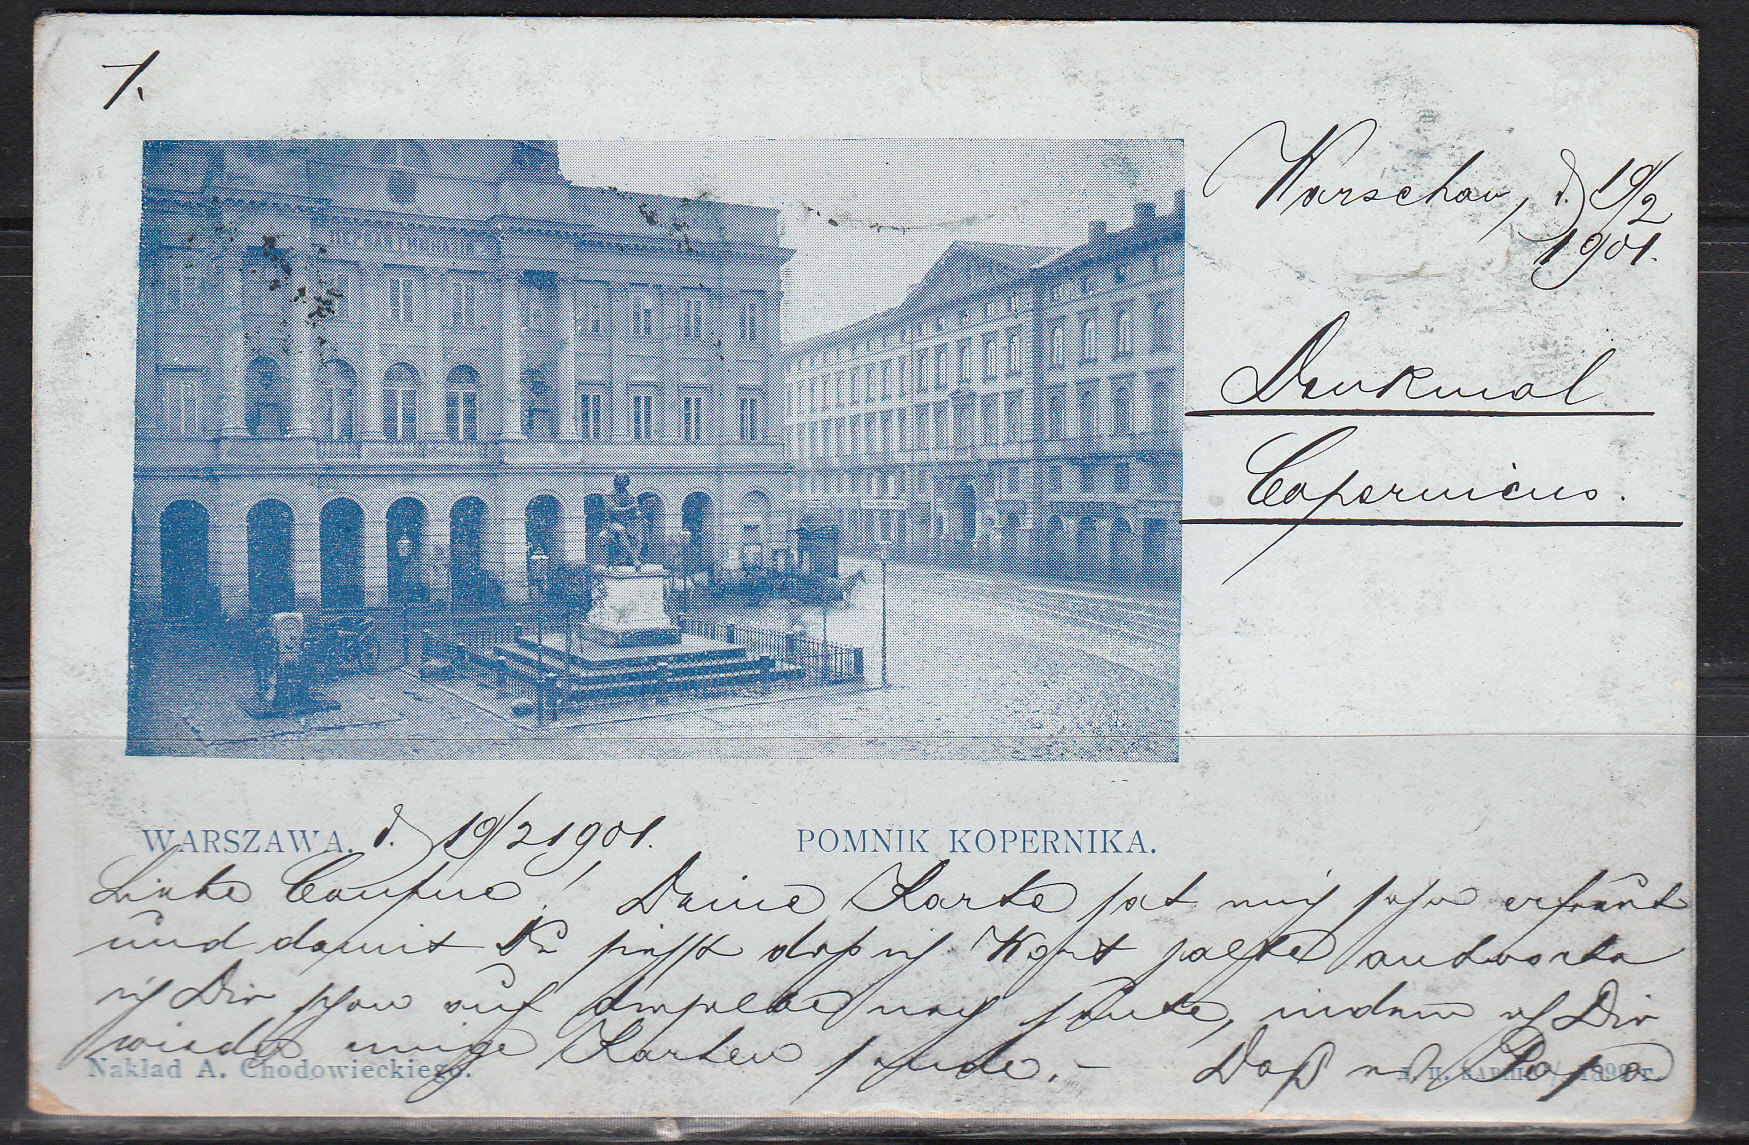 1.
Warschau, d. 19/2
1901.
Denkmal
Copernicus.
WARSZAWA. d. 19/2 1901.
POMNIK KOPERNIKA.
Liebe Cousine! Deine Karte hat mich sehr erfreut
und damit Du siehst daß ich Wort halte antworte
ich Dir schon auf dieselbe noch heute, indem ich Dir
wieder einige Karten sende. – Daß Papa
Nakład A. Chodowieckiego.